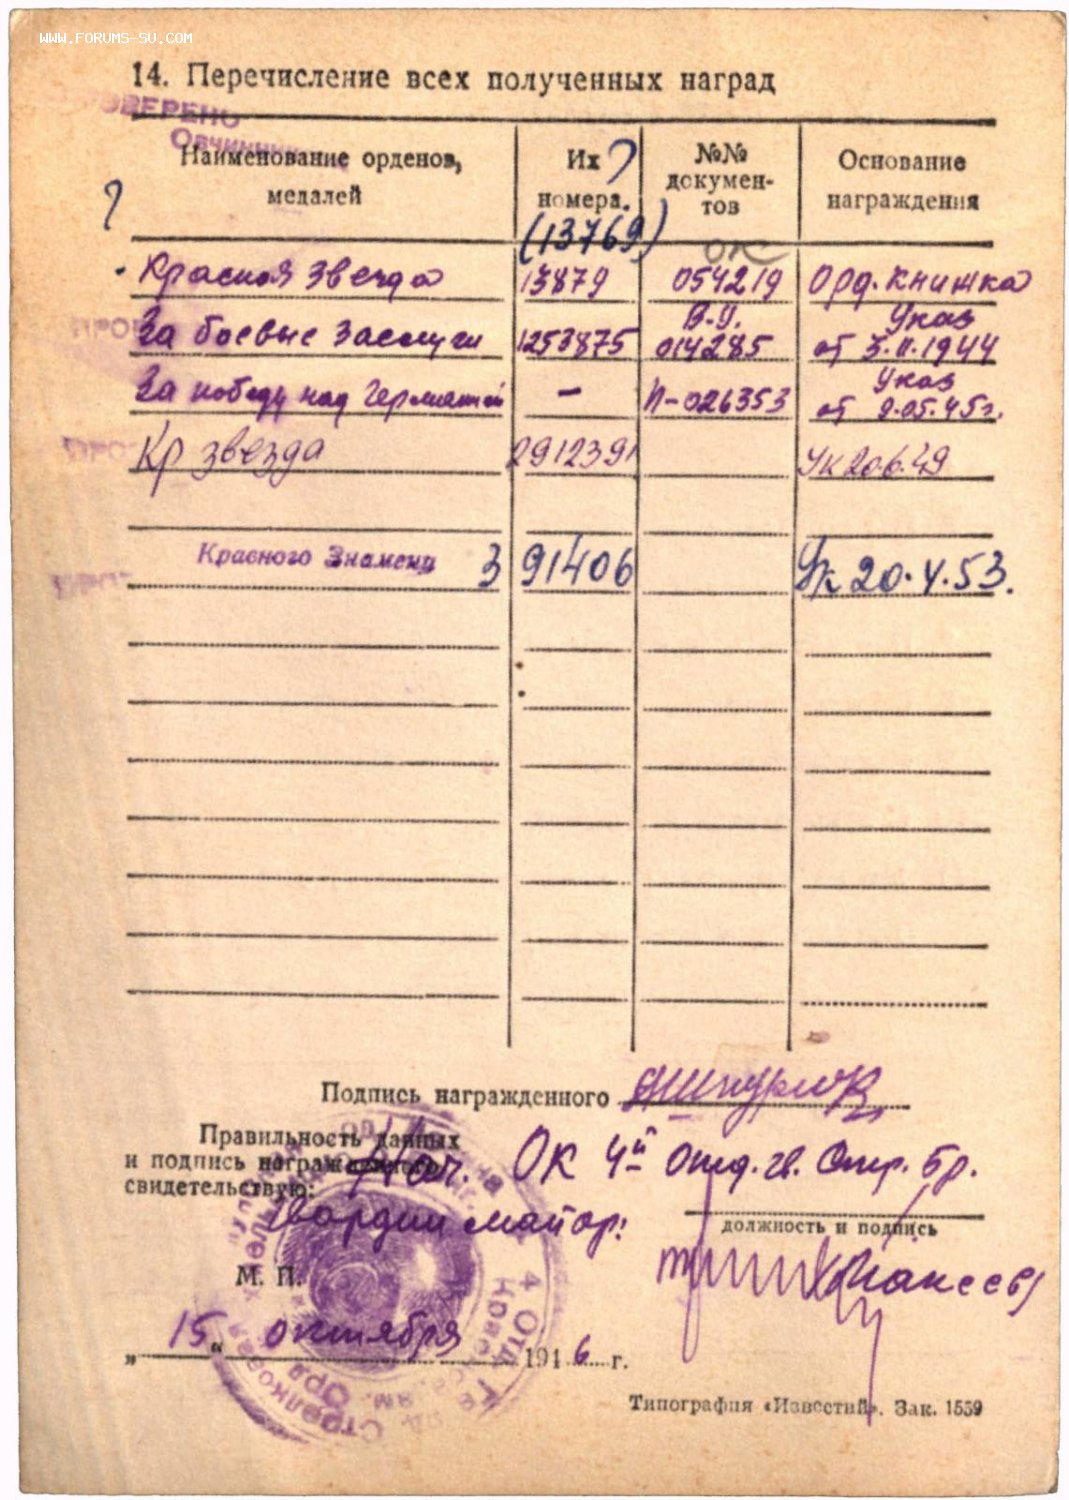 WWW.FORUMS-SU.COM
14. Перечисление всех полученных наград
ОВЕРЕНО
Наименование орденов, медалей
Их номера.
№№ докумен-тов
Основание награждения
?
?
(13769)
ОК
Красная Звезда 13879 054219 Орд. Книжка
За боевые заслуги 1253875 В.У. 014285 Указ от 3.11.1944
За победу над Германией — П-026353 Указ от 9.05.45г.
Кр звезда 2912391 Ук 20.6.49
Красного Знамени 391406 Ук 20.4.53.
Подпись награжденного
Правильность данных
и подпись награжденного
свидетельствую:
Нач. ОК 4й Отд. гв. Стр. бр.
Гвардии майор:
должность и подпись
М. П.
„15“ октября 1946 г.
Типография «Известий». Зак. 1559